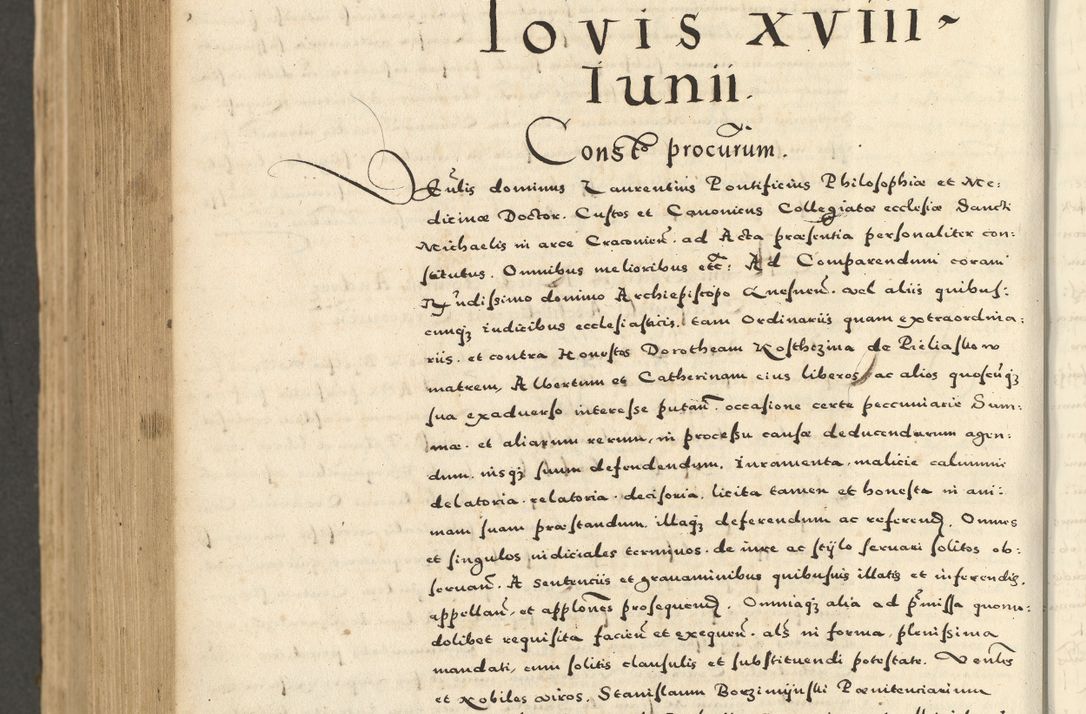 Iovis xviii
Iunii.
Const̃o procũrum.
Eũlis dominus Laurentius Pontificius Philosophiæ et Me:
dicinæ Doctor. Custos et Canonicus Collegiatæ ecclesiæ Sancti
Michaelis in arce Cracovieñ. ad Acta præsentia personaliter con:
stitutus. Omnibus melioribus etc̃: Ad Comparendum coram
R̃ndissimo domino Archiepiscopo Gnesneñ. vel aliis quibus:
cunqꝫ iudicibus ecclesiasticis, tam Ordinariis quam extraordina:
riis. et contra Honestos Dorotheam Kosthczina de Pieliaskow
matrem, Albertum et Catherinam eius liberos, ac alios quoscũqꝫ
sua exadverso interesse putañ. occasione certe peccuniarie Sum:
mæ. et aliarum rerum, in processu causæ deducendarum agen:
dum. iusqꝫ suum defendendum. Iuramenta, malicie calumnie
delatoria. relatoria. decisoria. licita tamen et honesta in ani:
mam suam præstandum. illaqꝫ deferendum ac referend̃. Omnes
et singulos iudiciales terminos. de iure ac stylo servari solitos ob:
servañ. A sentenciis et gravaminibus quibusvis illatis et inferendis.
appellañ. et applones prosequend̃. Omniaqꝫ alia ad p̃missa quomo:
dolibet requisita facieñ et exequeñ. als̃ in forma, plenissima
mandati, cum solitis clausulis et substituendi potestate. Venl̃es
et Nobiles viros. Stanislaum Borzimijnski Pœnitenciarium